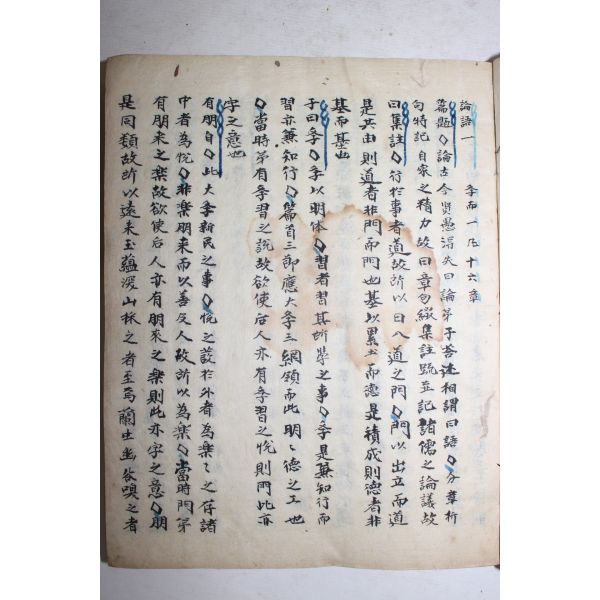 論語一 斈而一凡十六章
篇題◇論古今賢愚得失曰論弟子答述相謂曰語◇分章析
句特記自家之精力故曰章句綴集註疏並記諸儒之論議故
曰集註◇行於事者道故所以曰入道之門◇門以出立而道
是共由則道者非門而門也基以累土而德是積成則德者非
基而基也
子曰斈◇斈以明体◇習者習其所學之事◇斈是兼知行而
習亦兼知行◇篇首三節應大斈三綱領而此明〻德之工也
◇當時弟有斈習之說故欲使后人亦有斈習之悅則門此亦
字之意也
有朋自◇此大斈新民之事◇悅之設於外者為樂〻之存諸
中者為悅◇非樂朋來而以善反人故所以為樂◇當時門弟
有朋来之楽故欲使后人亦有朋來之樂則此亦字之意◇朋
是同類故所以遠来玉蘊深山採之者至焉蘭生幽谷嗅之者